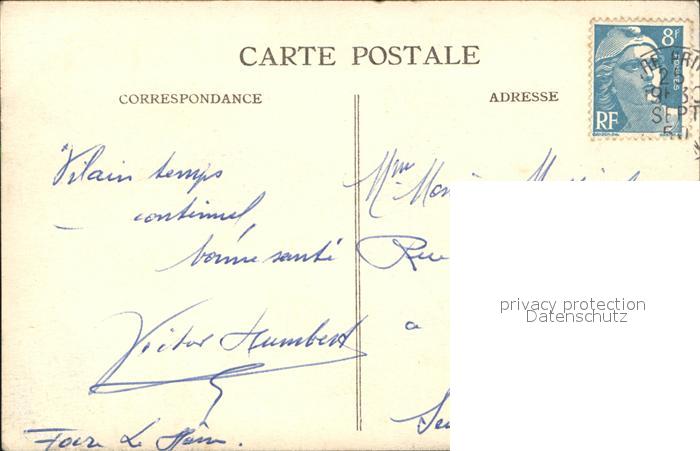 CARTE POSTALE
CORRESPONDANCE
ADRESSE
8F
POSTES
RF
SEPT
Vilain temps
continuel,
bonne santé
Victor Humbert
Mme
Rue
a
privacy protection
Datenschutz